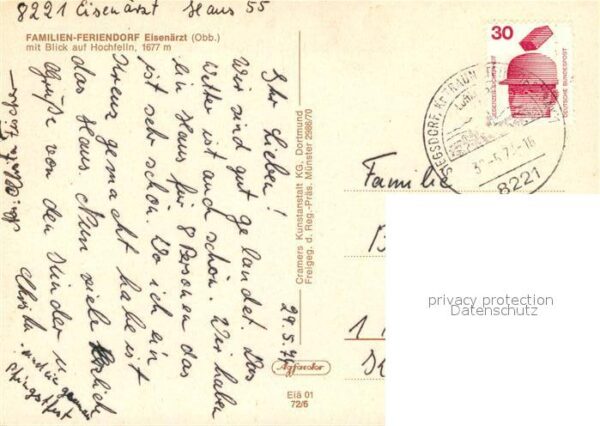 8221 Eisenärzt Haus 55
FAMILIEN-FERIENDORF Eisenärzt (Obb.)
mit Blick auf Hochfelln, 1677 m
29.5.74
Ihr Lieben!
Wir sind gut gelandet. Das
Wetter ist auch schön. Wir haben
ein Haus für 8 Personen das
ist sehr schön. Wo ich ein
Kreuz gemacht habe ist
das Haus. Nun viele herzliche
Grüße von den Kinder u.
Christa
und ein
Pfingstfest
Cramers Kunstanstalt KG. Dortmund
Freigeg. d. Reg.-Präs. Münster 2986/70
Agfacolor
Eiä 01
72/6
30
DEUTSCHE BUNDESPOST
SIEGSDORF, KR TRAUN
8221
Familie
B
1
privacy protection
Datenschutz